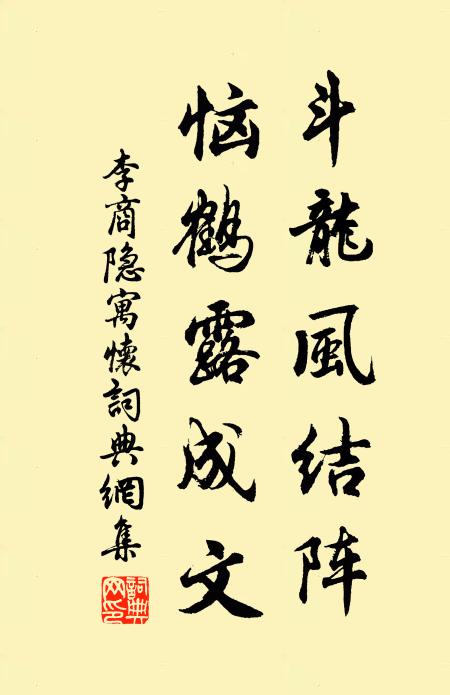 斗龍風结阵
恼鹤露成文
李商隐寓懷詞典網集
詞典
网印